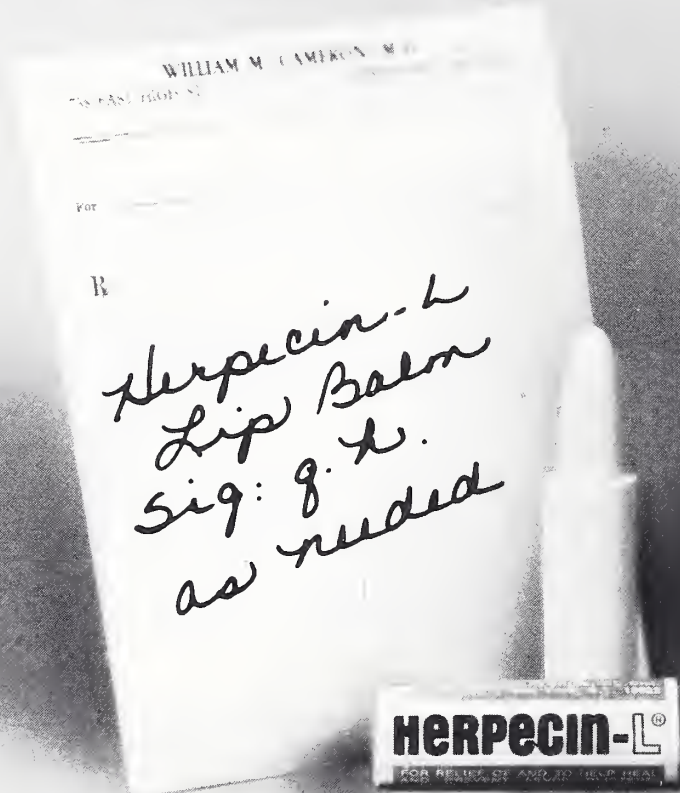 WILLIAM M. CAMERON M.D.
For
℞
Herpecin-L
Lip Balm
Sig: q.h.
as needed
HERPECIN-L®
FOR RELIEF OF AND TO HELP HEAL